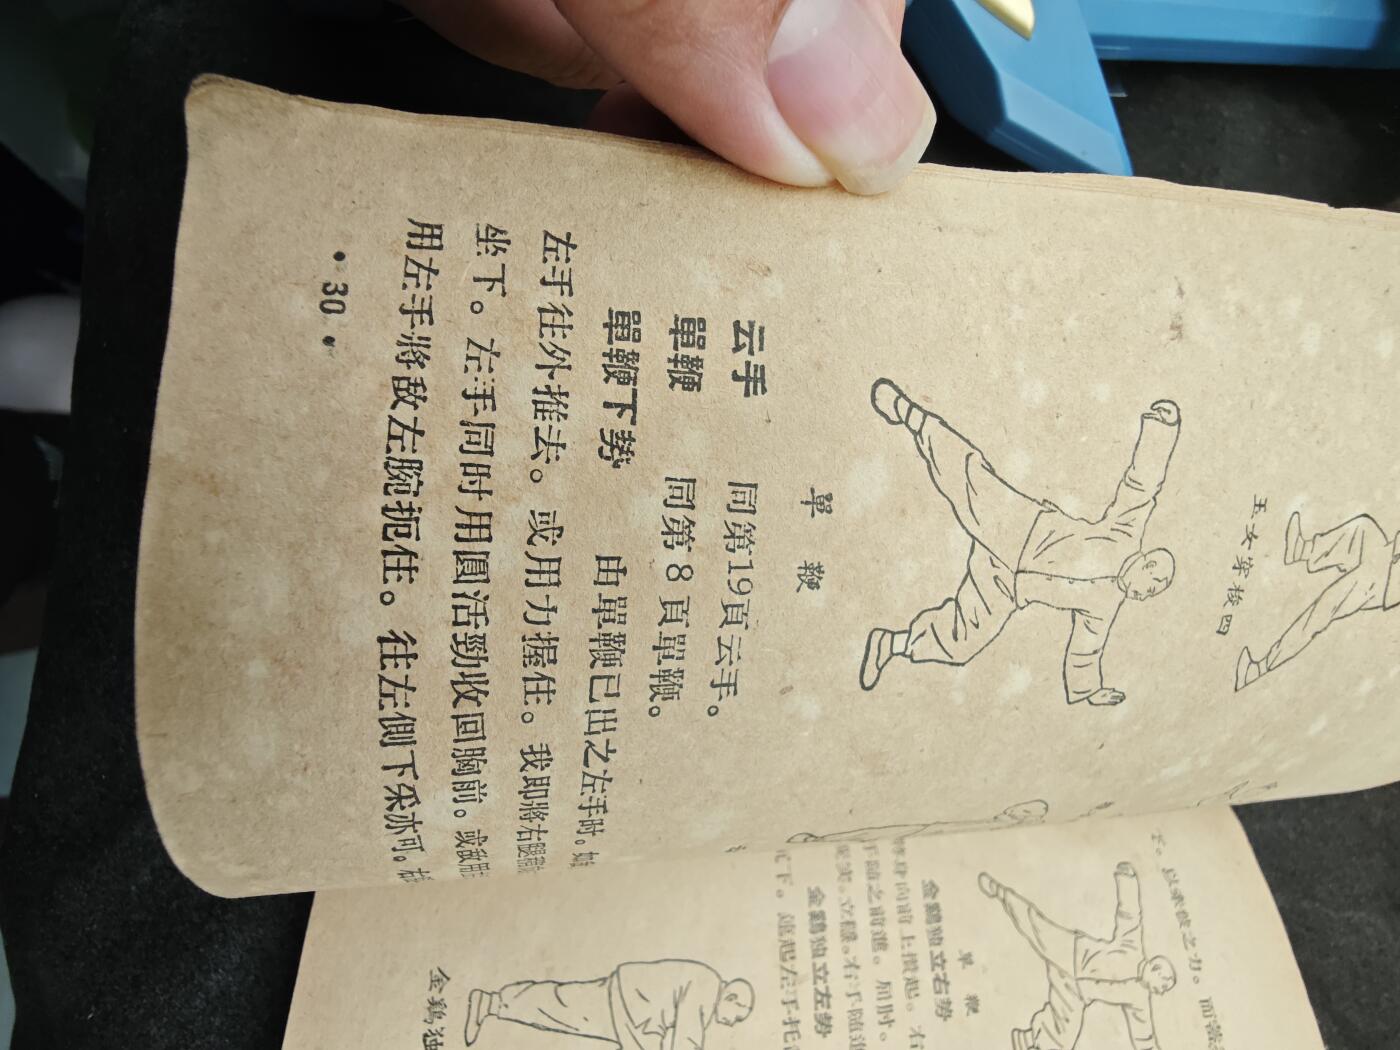 玉女穿梭四
單鞭
云手 同第19頁云手。
單鞭 同第8頁單鞭。
單鞭下勢 由單鞭已出之左手時。如
左手往外推去。或用力握住。我即將右腿
坐下。左手同時用圓活勁收回胸前。或敵用
用左手將敌左腕扼住。往左側下采亦可。
•30•
力。而
單鞭
金鷄独立右勢
身向前上攒起。右
手隨之前進。屈肘。
立穩。右手隨進
金鷄独立左勢
下。速起左手托
金鷄独